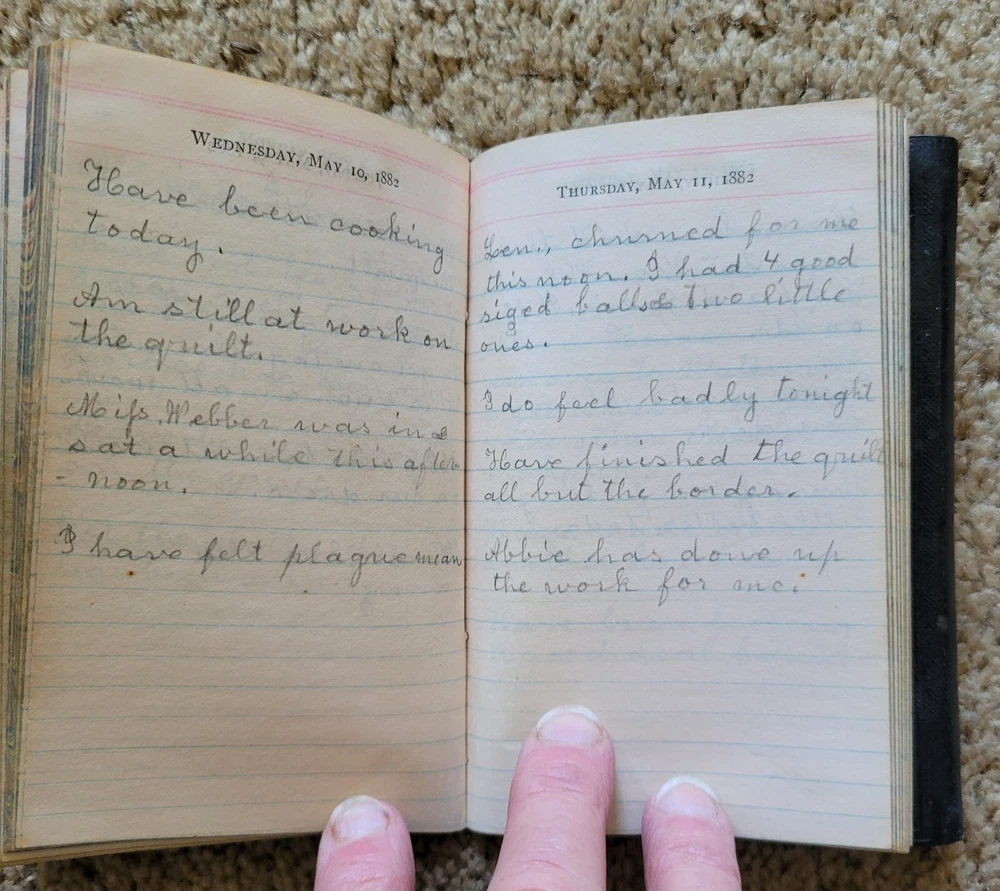 WEDNESDAY, MAY 10, 1882
Have been cooking
today.
Am still at work on
the quilt.
Miss Webber was in &
sat a while this after
- noon.
I have felt plague mean
THURSDAY, MAY 11, 1882
Len., churned for me
this noon. I had 4 good
siged balls & two little
ones.
I do feel badly tonight
Have finished the quilt
all but the border.
Abbie has done up
the work for me.